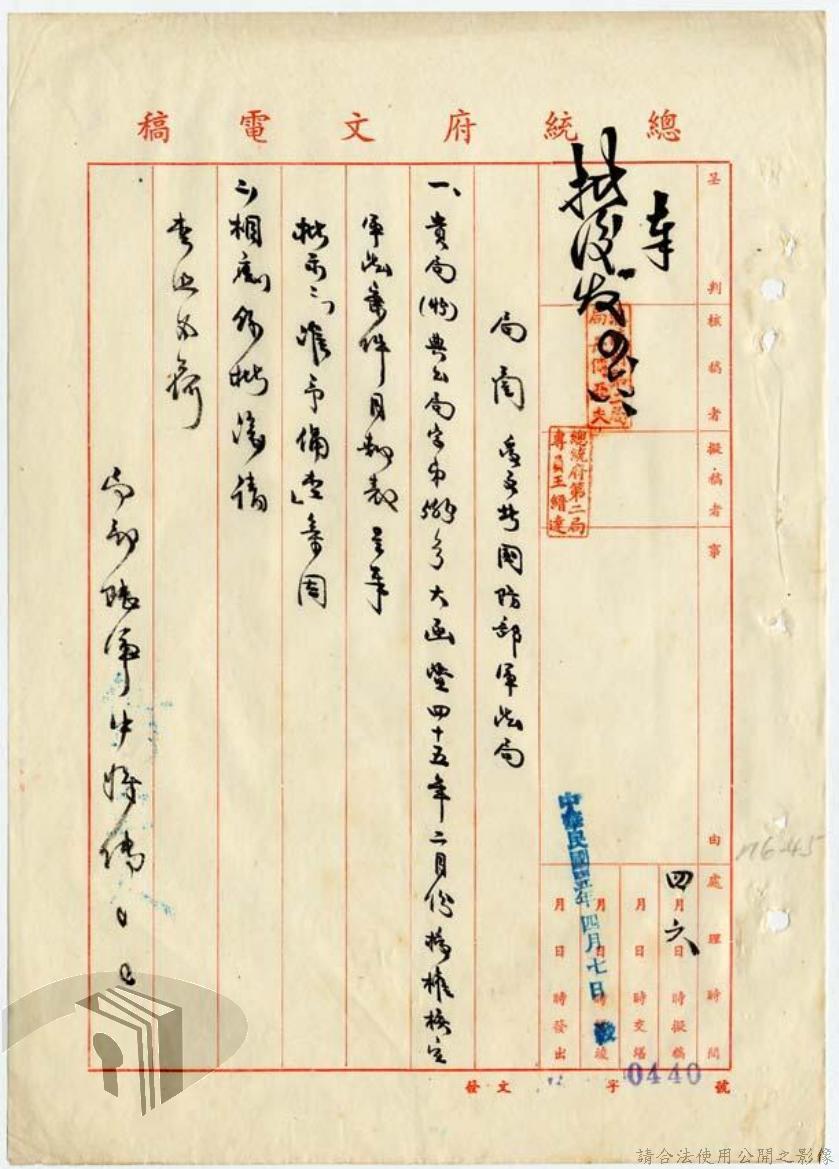 總統府文電稿
呈判
核稿者
擬稿者
事由
處理時間
奉
批後發
總統府第二局
局長傅亞夫
總統府第二局
專員王縉達
四月六日時擬稿
月日時交繕
中華民國四五年四月七日
月日時發出
發文字0440號
局函 受文者國防部軍法局
一、貴局(45)典公局字第號大函暨四十五年二月份授權核定
軍法案件月報表呈奉
批示:「准予備查」等因
二、相應錄批復請
查照為荷
局副陸軍中將傅
176-45
請合法使用公開之影像